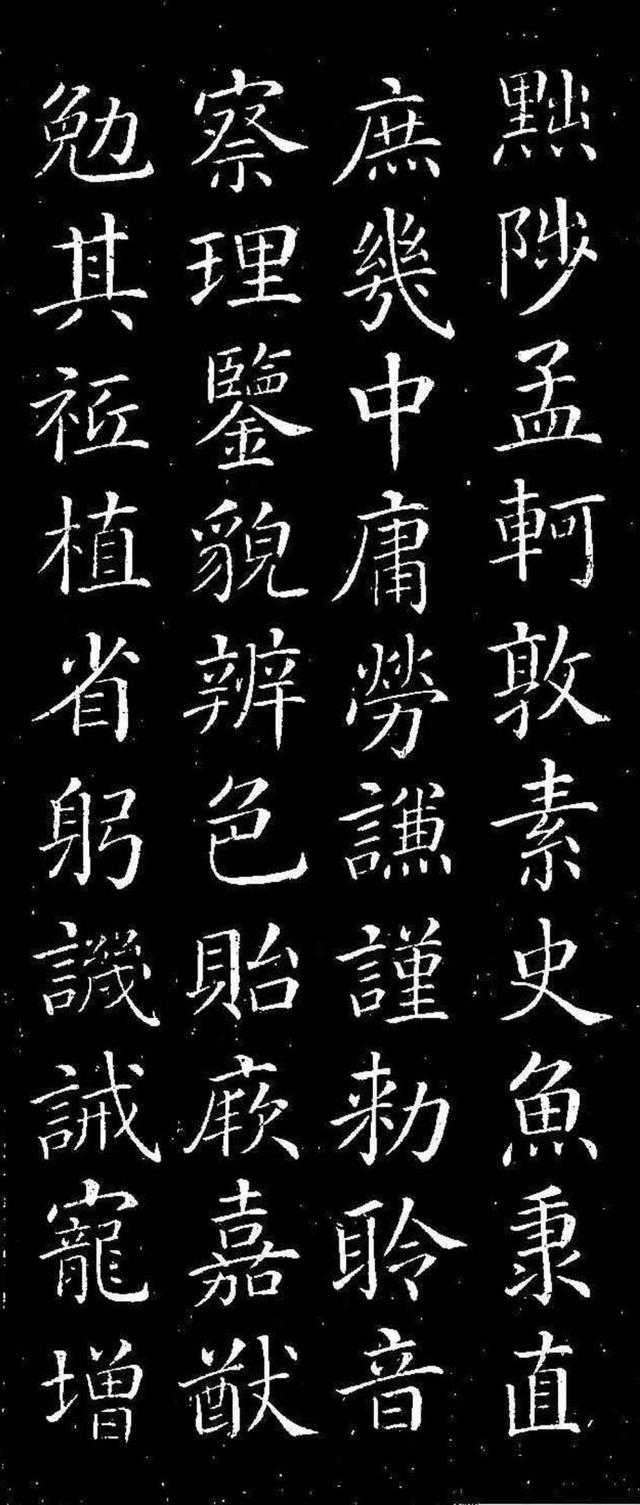 黜陟孟軻敦素史魚秉直
庶幾中庸勞謙謹勑聆音
察理鑒貌辨色貽厥嘉猷
勉其祗植省躬譏誡寵增